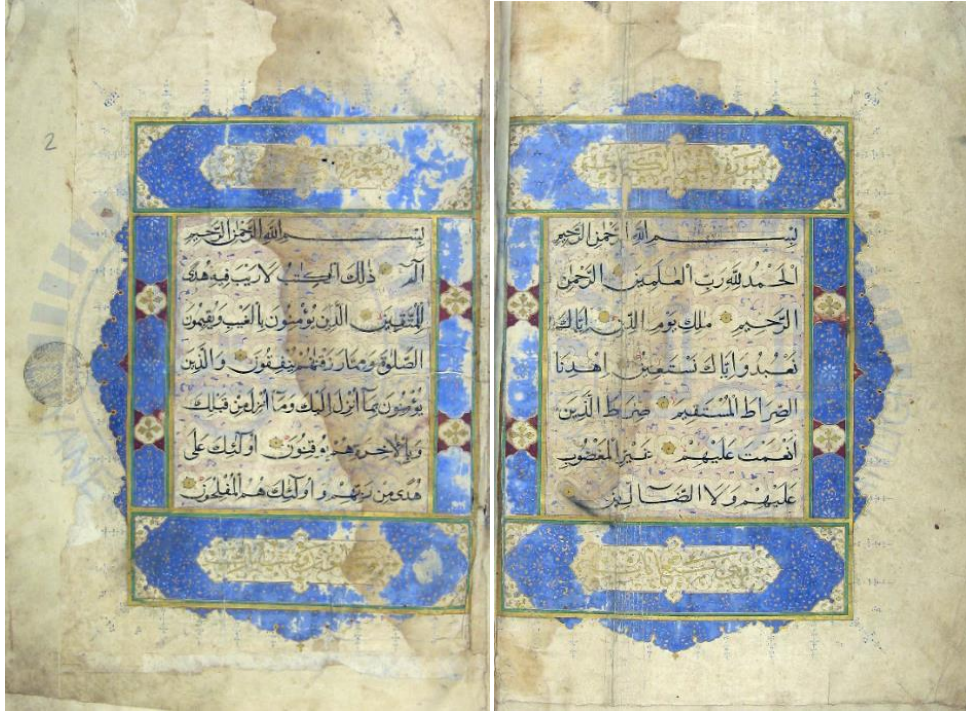 بسم الله الرحمن الرحيم
الحمد لله رب العلمين الرحمن
الرحيم ملك يوم الدين اياك
نعبد واياك نستعين اهدنا
الصراط المستقيم صراط الذين
انعمت عليهم غير المغضوب
عليهم ولا الضالين
بسم الله الرحمن الرحيم
الم ذلك الكتب لا ريب فيه هدى
للمتقين الذين يؤمنون بالغيب ويقيمون
الصلوة ومما رزقنهم ينفقون والذين
يؤمنون بما انزل اليك وما انزل من قبلك
وبالاخرة هم يوقنون اولئك على
هدى من ربهم واولئك هم المفلحون
2